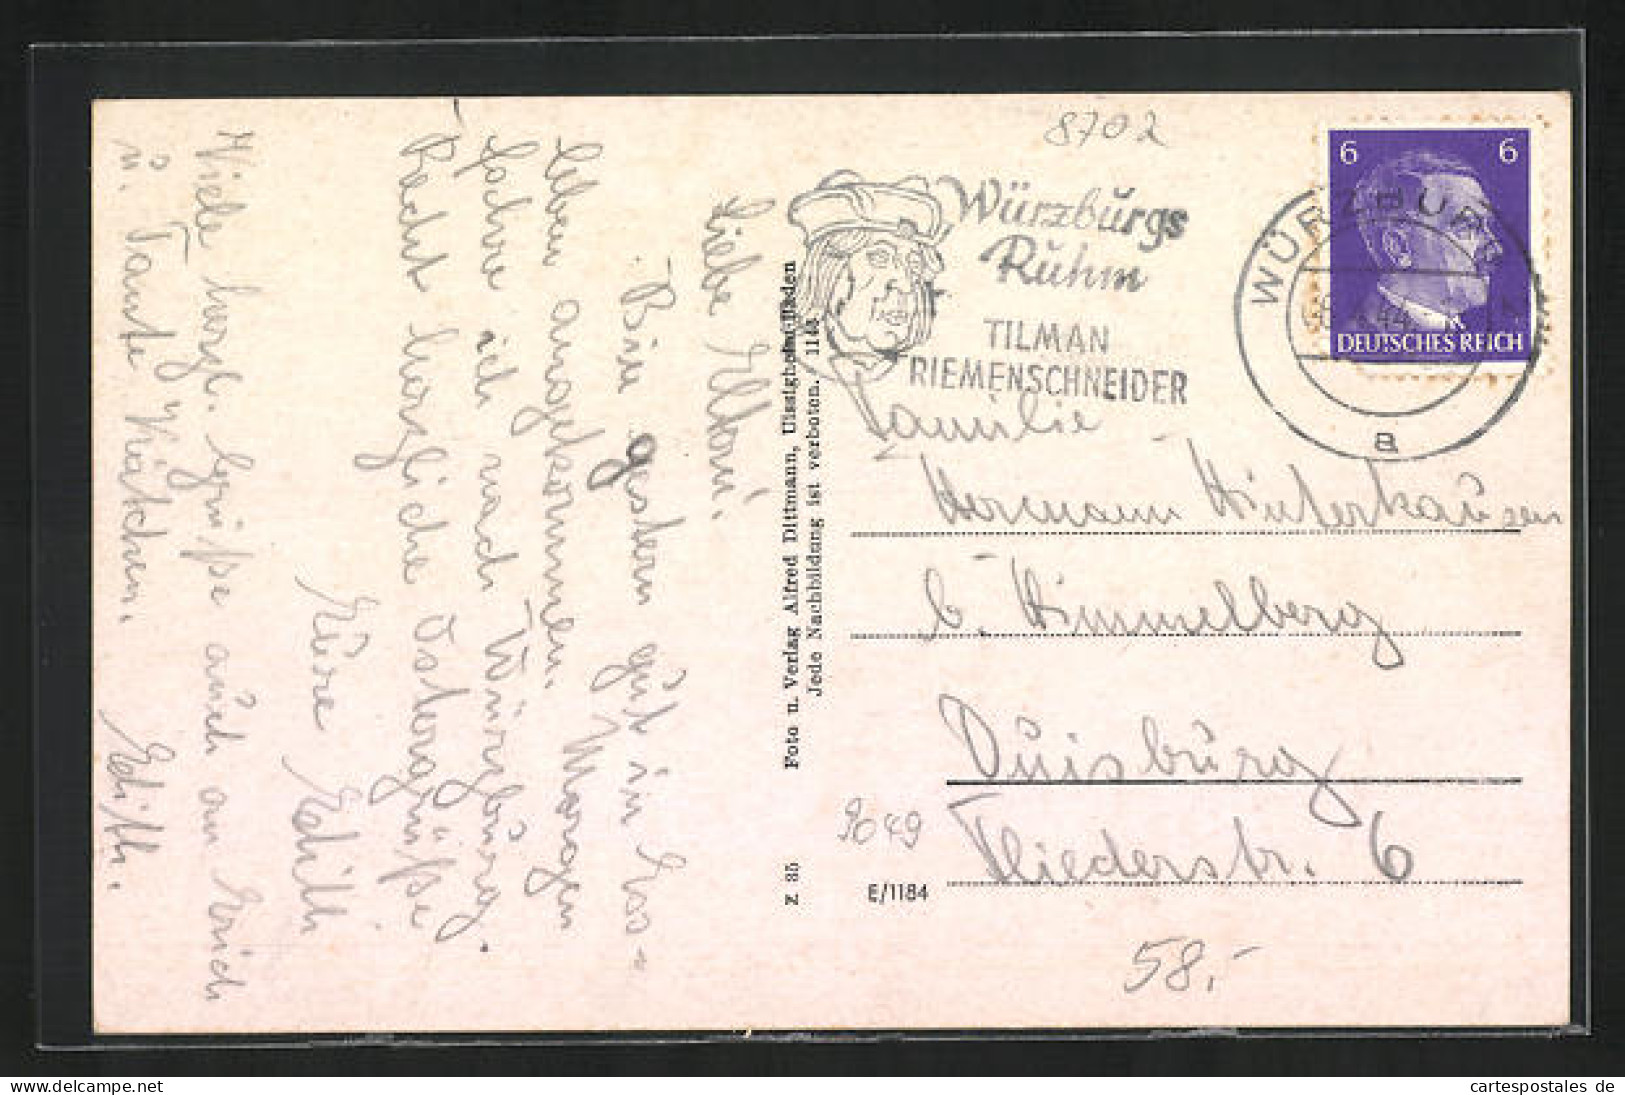 8702
Würzburgs
Ruhm
TILMAN
RIEMENSCHNEIDER
6 6
DEUTSCHES REICH
WÜRZBURG
44
a
Liebe Eltern!
Bin gestern gut in Ess-
leben angekommen. Morgen
fahre ich nach Würzburg.
Recht herzliche Ostergrüße
Eure Edith
Viele herzl. Grüße auch an Erich
u. Tante Kätchen. Edith.
Foto u. Verlag Alfred Dittmann, Uissigheim/Baden
Jede Nachbildung ist verboten. 1143
Z 85
Familie
Hermann Hinterhausen
b. Himmelberg
Duisburg
Fliederstr. 6
9649
E/1184
58,-
cartespostales de